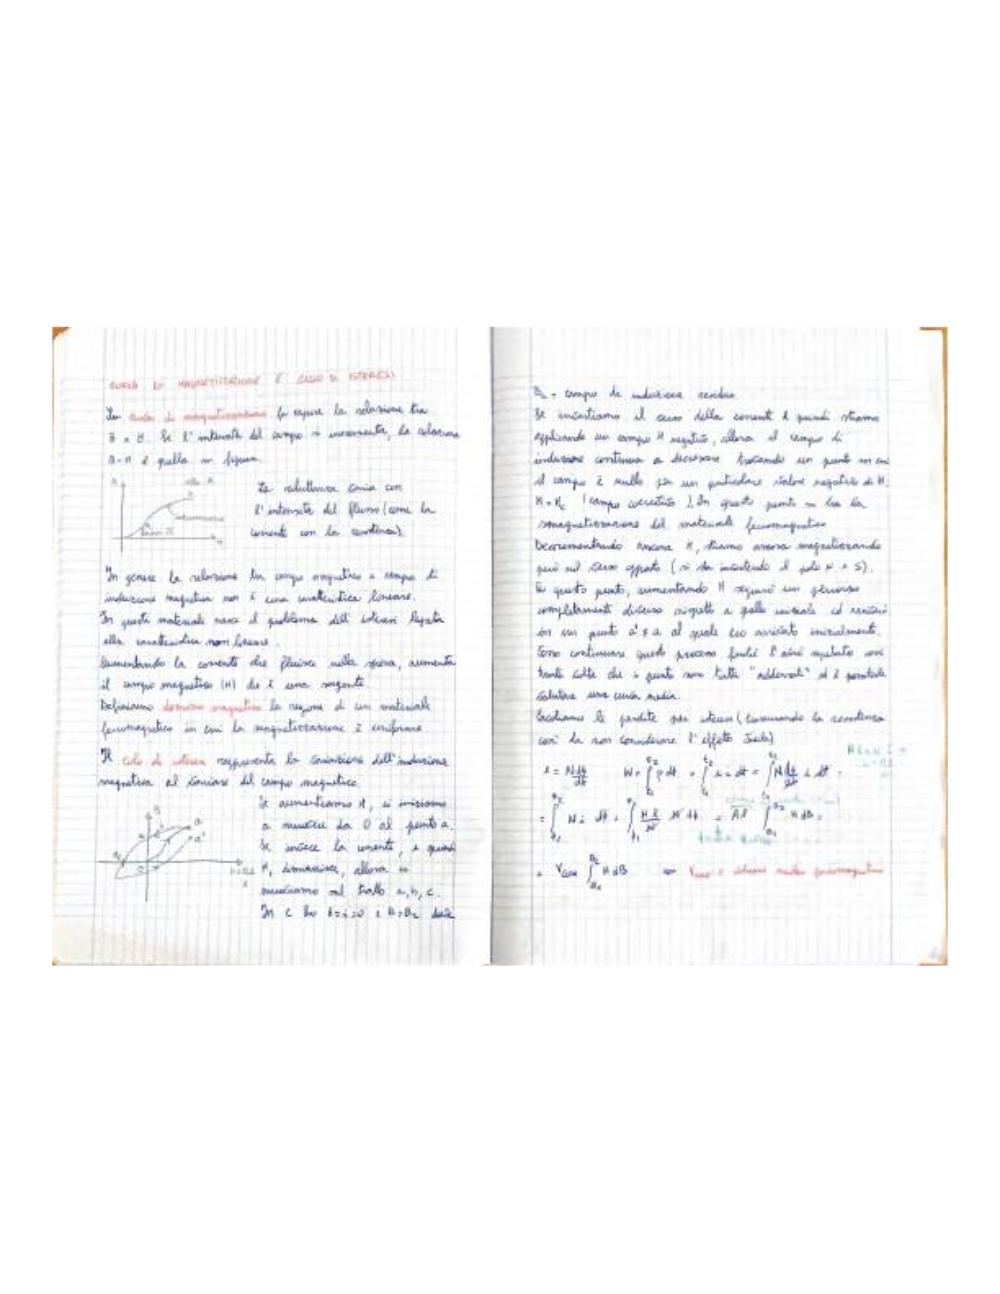 CURVA DI MAGNETIZZAZIONE E CICLO DI ISTERESI
La curva di magnetizzazione fa capire la relazione tra
B e H. Se l'intensità del campo si incrementa, la relazione
B-H è quella in figura.
La riluttanza varia con
l'intensità del flusso (come la
corrente con la resistenza).
In genere la relazione tra campo magnetico e campo di
induzione magnetica non è una caratteristica lineare.
In questi materiali nasce il problema dell'isteresi legata
alla caratteristica non lineare.
Aumentando la corrente che fluisce nella spira, aumenta
il campo magnetico (H) che è una sorgente.
Definiamo dominio magnetico la regione di un materiale
ferromagnetico in cui la magnetizzazione è uniforme.
Il ciclo di isteresi rappresenta la variazione dell'induzione
magnetica al variare del campo magnetico.
Se aumentiamo H, ci iniziamo
a muovere da O al punto a.
Se invece la corrente, e quindi
H, diminuisce, allora ci
muoviamo sul tratto a, b, c.
In c ho i=0 e B=Br
Br = campo di induzione residua
Se invertiamo il verso della corrente e quindi stiamo
applicando un campo H negativo, allora il campo di
induzione continua a decrescere trovando un punto in cui
il campo è nullo per un particolare valore negativo di H.
H=Hc (campo coercitivo). In questo punto si ha la
smagnetizzazione del materiale ferromagnetico
Decrementando ancora H, stiamo ancora magnetizzando
però nel verso opposto (si sta invertendo il polo N e S).
In questo punto, aumentando H seguirò un percorso
completamente diverso rispetto a quello iniziale ed arriverò
in un punto a' ≠ a al quale ero arrivato inizialmente.
Sono continuare questo processo finché l'avrò ripetuto così
tante volte che i punti sono tutti "addensati" ed è possibile
valutare una curva media.
Calcoliamo le perdite per isteresi (trascurando la resistenza
così da non considerare l'effetto Joule)
W = ∫ p dt = ∫ i dt =
= Vferro ∫ H dB con Vferro = volume nucleo ferromagnetico